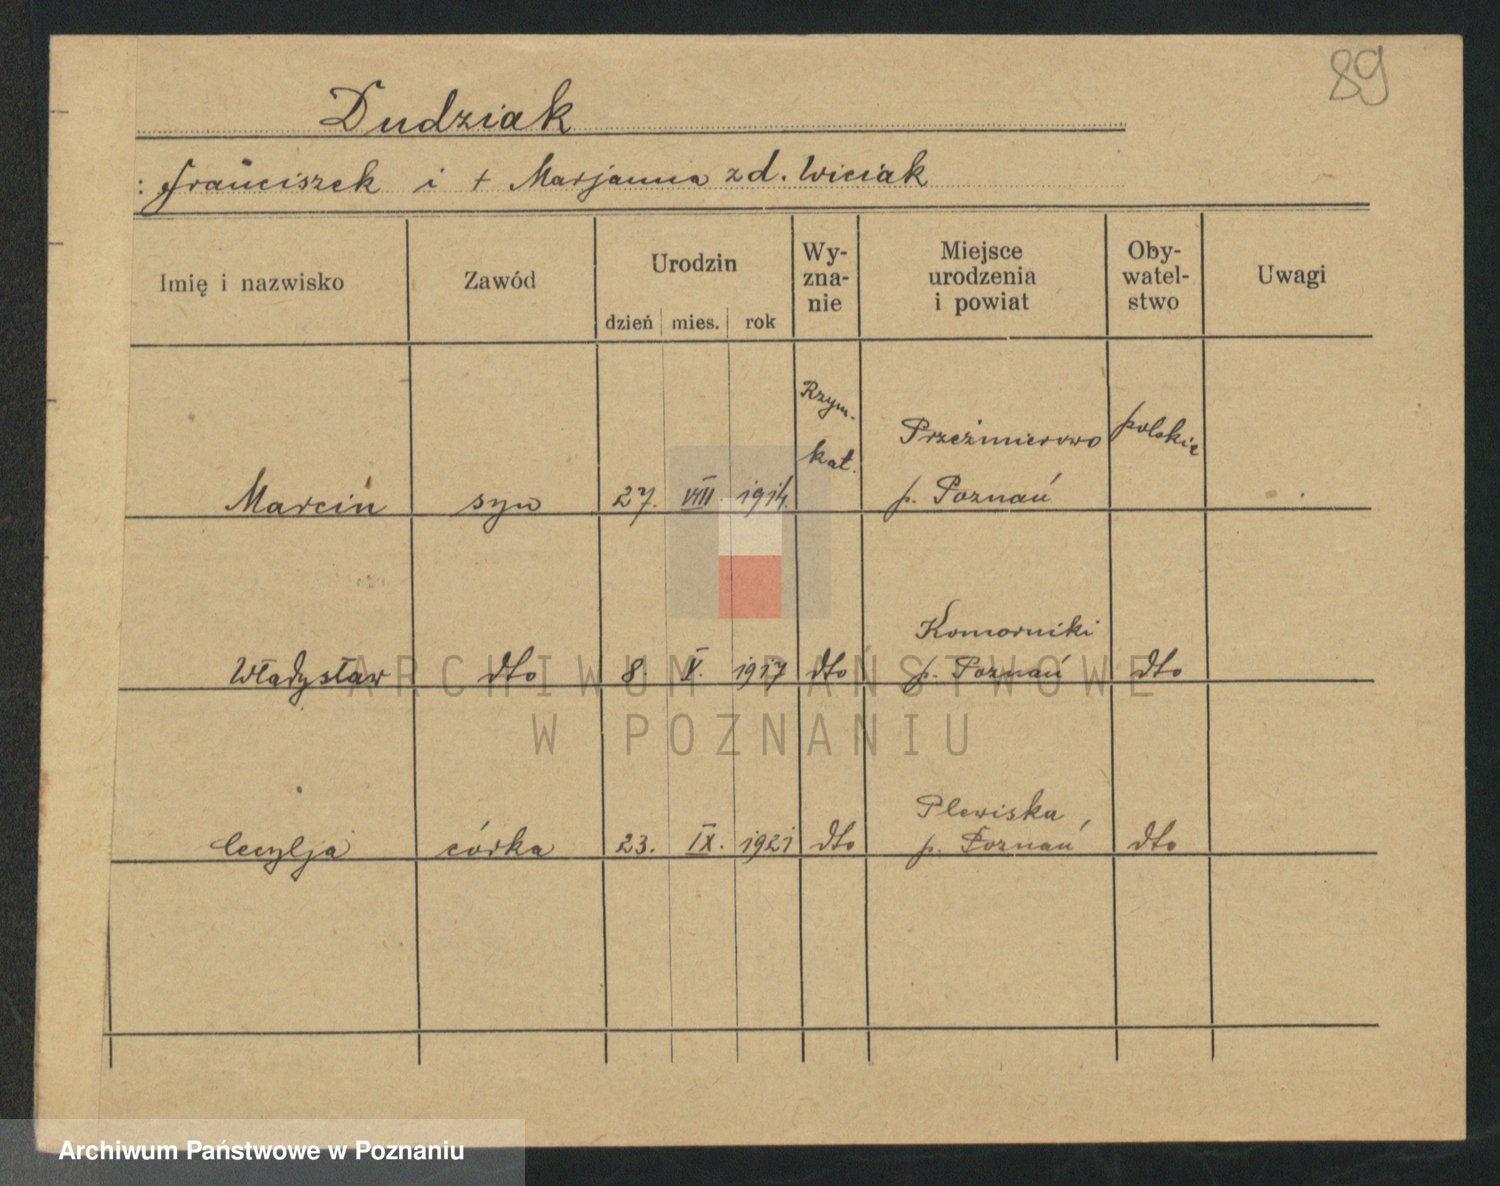 89
Dudziak
: Franciszek i + Marjanna z d. Wiciak
Imię i nazwisko
Zawód
Urodzin
dzień mies. rok
Wy-
zna-
nie
Miejsce
urodzenia
i powiat
Oby-
watel-
stwo
Uwagi
Marcin syn 27. VIII 1914. Rzym. kat. Przeźmierowo p. Poznań polskie
Władysław dto 8. V. 1917 dto Komorniki p. Poznań dto
Cecylja córka 23. IX. 1921 dto Plewiska, p. Poznań dto
ARCHIWUM PAŃSTWOWE
W POZNANIU
Archiwum Państwowe w Poznaniu